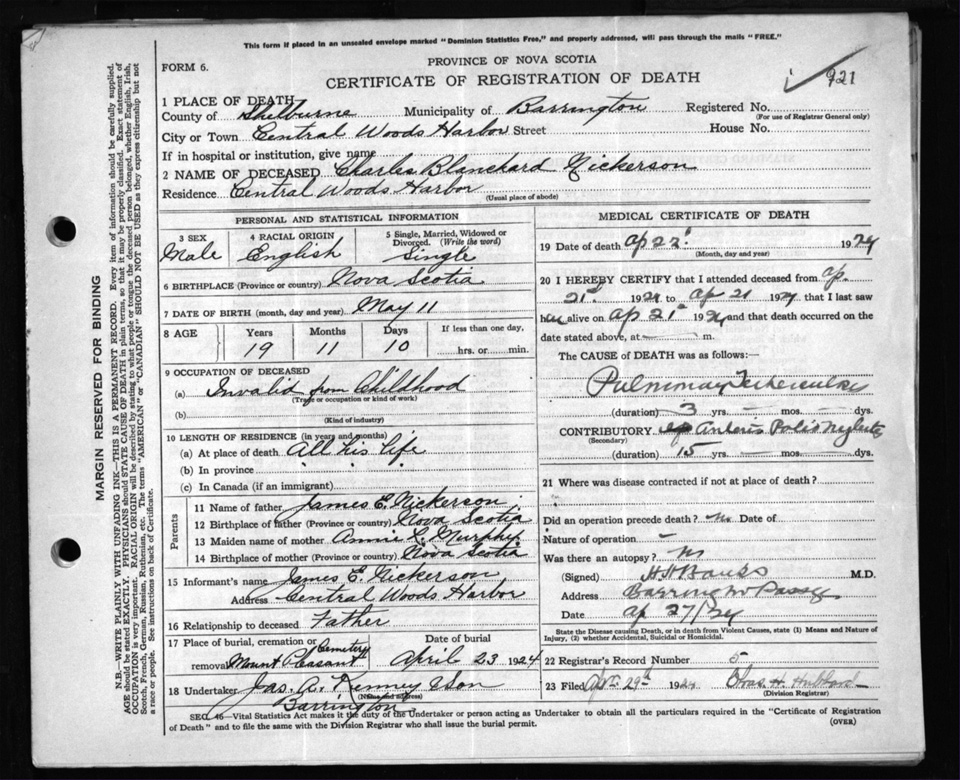 This form if placed in an unsealed envelope marked "Dominion Statistics Free," and properly addressed, will pass through the mails "FREE."
PROVINCE OF NOVA SCOTIA
FORM 6.
CERTIFICATE OF REGISTRATION OF DEATH
921
1 PLACE OF DEATH
County of Shelburne Municipality of Barrington Registered No.
(For use of Registrar General only)
City or Town Central Woods Harbor Street House No.
If in hospital or institution, give name
2 NAME OF DECEASED Charles Blanchard Nickerson
Residence Central Woods Harbor
(Usual place of abode)
MARGIN RESERVED FOR BINDING
N.B.—WRITE PLAINLY WITH UNFADING INK—THIS IS A PERMANENT RECORD. Every item of information should be carefully supplied.
AGE should be stated EXACTLY. PHYSICIANS should STATE CAUSE OF DEATH in plain terms, so that it may be properly classified. Exact statement of
OCCUPATION is very important. RACIAL ORIGIN will be described by stating to what people or tongue the deceased person belonged, whether English, Irish,
Scotch, French, German, Russian, Ruthenian, etc. The terms "AMERICAN" or "CANADIAN" SHOULD NOT BE USED as they express citizenship but not
a race or people. See instructions on back of Certificate.
PERSONAL AND STATISTICAL INFORMATION
3 SEX
Male
4 RACIAL ORIGIN
English
5 Single, Married, Widowed or
Divorced. (Write the word)
Single
6 BIRTHPLACE (Province or country) Nova Scotia
7 DATE OF BIRTH (month, day and year) May 11
8 AGE Years Months Days If less than one day,
19 11 10 hrs. or min.
9 OCCUPATION OF DECEASED
(a) Invalid from Childhood
(Trade or occupation or kind of work)
(b)
(Kind of industry)
10 LENGTH OF RESIDENCE (in years and months)
(a) At place of death All his life
(b) In province
(c) In Canada (if an immigrant)
Parents
11 Name of father James E. Nickerson
12 Birthplace of father (Province or country) Nova Scotia
13 Maiden name of mother Annie L. Murphy
14 Birthplace of mother (Province or country) Nova Scotia
15 Informant's name James E. Nickerson
Address Central Woods Harbor
16 Relationship to deceased Father
17 Place of burial, cremation or Cemetery
removal Mount Pleasant
Date of burial
April 23 1924
18 Undertaker Jas. A. Kenney & Son
(Name and address)
Barrington
MEDICAL CERTIFICATE OF DEATH
19 Date of death Ap 22 1924
(Month, day and year)
20 I HEREBY CERTIFY that I attended deceased from Ap.
21 1924 to Ap 21 1924 that I last saw
him alive on Ap 21 1924 and that death occurred on
date stated above, at m.
The CAUSE of DEATH was as follows:—
Pulmonary Tuberculosis
(duration) 3 yrs. — mos. — dys.
CONTRIBUTORY
(Secondary)
(duration) 15 yrs. — mos. — dys.
21 Where was disease contracted if not at place of death?
Did an operation precede death? no Date of
Nature of operation —
Was there an autopsy? no
(Signed) H H Banks M.D.
Address Barrington Passage
Date Ap 27/24
State the Disease causing Death, or in death from Violent Causes, state (1) Means and Nature of
Injury, (2) whether Accidental, Suicidal or Homicidal.
22 Registrar's Record Number 5
23 Filed Apr. 29th 1924 Chas. H. Hubbard
(Division Registrar)
SEC. 46—Vital Statistics Act makes it the duty of the Undertaker or person acting as Undertaker to obtain all the particulars required in the "Certificate of Registration
of Death" and to file the same with the Division Registrar who shall issue the burial permit. (OVER)